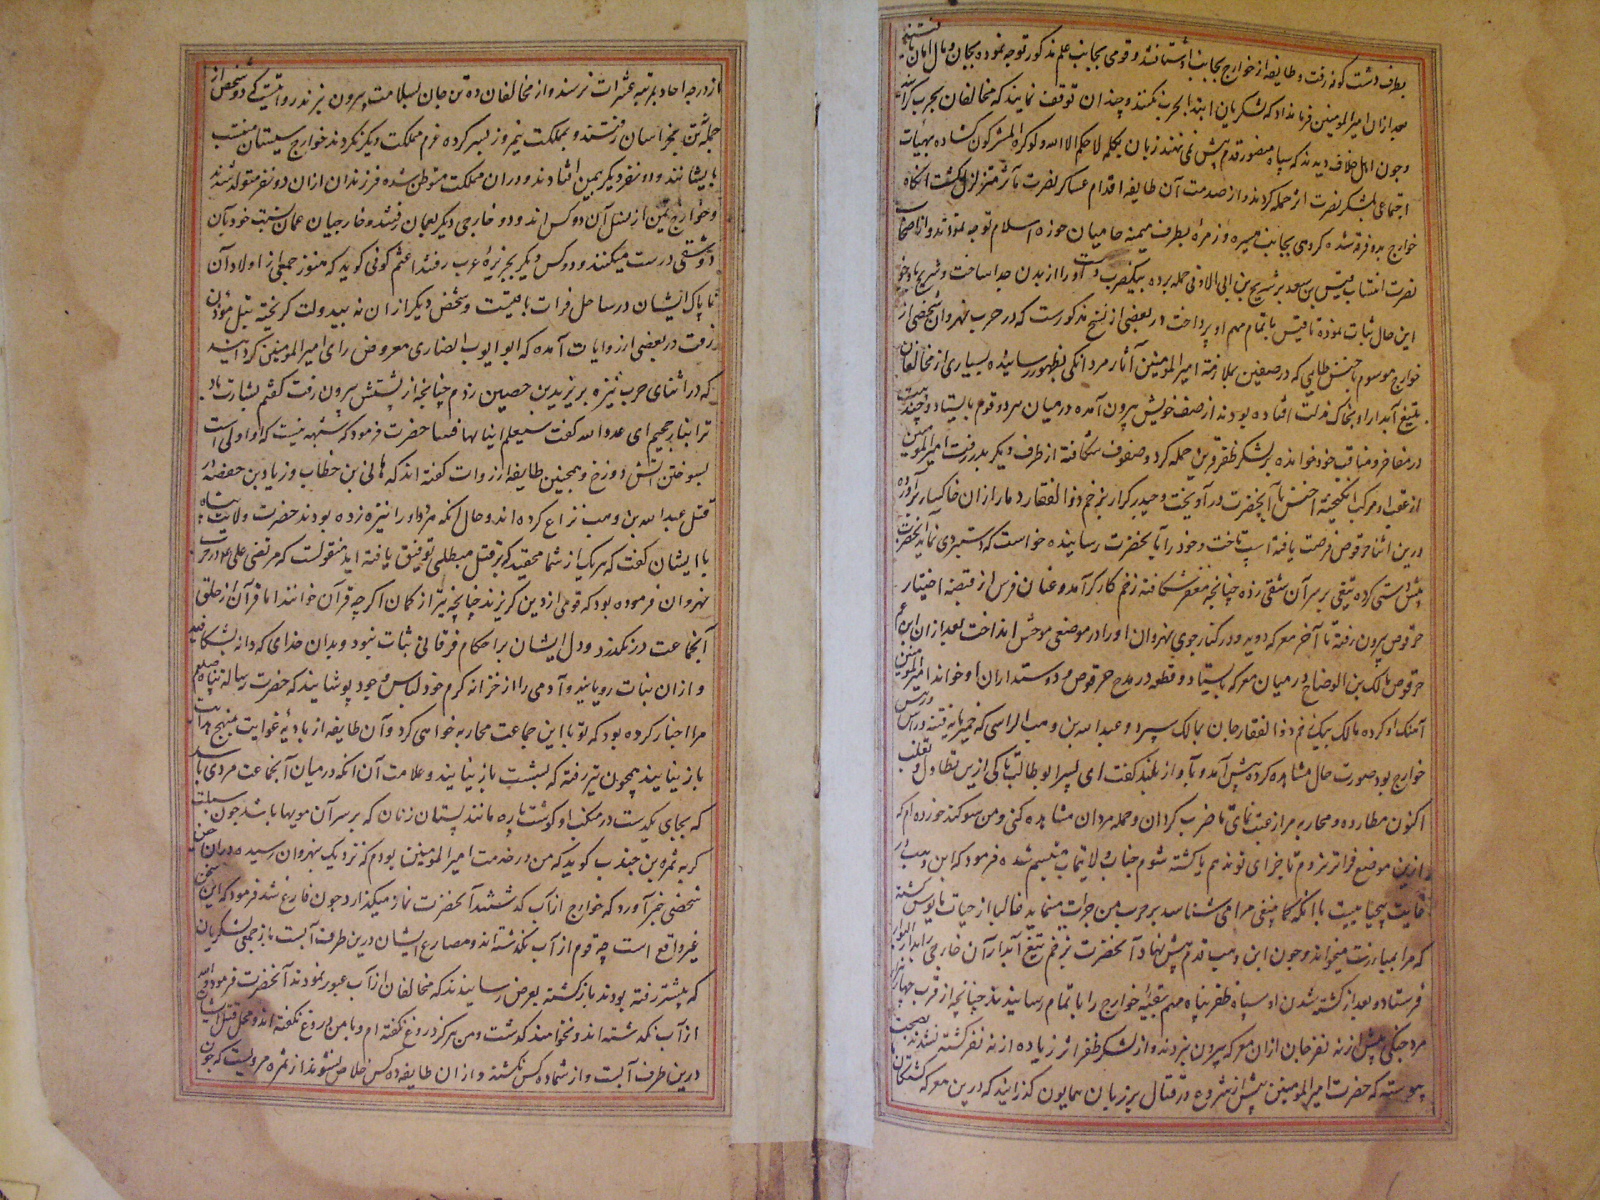 بطرف دشت کوفه رفت و طایفه از خوارج بجانب او شتافتند و قومی بجانب علم مذکور توجه نموده بجان و مال امان یافتند
بعد ازان امیرالمومنین فرمان داد که لشکریان ابتدا بحرب نکنند و چندان توقف نمایند که مخالفان بحرب
و چون اهل خلاف دیدند که سپاه منصور قدم پیش نمی نهند زبان بکلمه لا حکم الا لله ولو کره المشرکون کشاده بهیات
اجتماعی بر لشکر نصرت اثر حمله کردند و از صدمت آن طایفه اقدام عساکر نصرت مآثر متزلزل کشت انکاه
خوارج بدو فرقه شده کروهی بجانب میسره و زمره بطرف میمنه حامیان حوزه اسلام توجه نمودند و از اصحاب
نصرت انتساب قیس بن سعد بر شریح بن ابی الاوفی حمله برده بیکضرب دست او را از بدن جدا ساخت و شریح با وجود
این حال ثبات نموده تا قیس باتمام مهم او پرداخت در بعضی از نسخ مذکورست که در حرب نهروان شخصی از
خوارج موسوم باخنس طایی که در صفین بملازمت امیرالمومنین آثار مردانکی بظهور رسانیده بسیاری از مخالفان
بتیغ آبدار او بخاک مذلت افتاده بودند از صف خویش بیرون آمده درمیان هر دو قوم بایستاد و چند بیت
در مفاخر و مناقب خود خوانده بر لشکر ظفر قرین حمله کرد و صفوف شکافته از طرف دیکر بدر رفت امیرالمومنین
از عقب او مرکب انکیخته اخنس با آنحضرت درآویخت و حیدر کرار بزخم ذوالفقار دمار ازان خاکسار برآورده
درین اثنا حرقوص فرصت یافته اسپ تاخت و خود را بآنحضرت رسانیده خواست که دستبردی نماید آنحضرت
پیش دستی کرده تیغی بر سر آن شقی زده چنانچه مغفر شکافته زخم کارکر آمد و عنان فرس از قبضه اختیار
حرقوص بیرون رفته تا آخر معرکه دوید و در کنار جوی نهروان او را در موضعی موحش انداخت بعد ازان ابن عم
حرقوص مالک بن الوضاح درمیان معرکه بایستاد و قطعه در مدح حرقوص و دوستداران او خواند امیرالمومنین
آهنک او کرده مالک بیک زخم ذوالفقار جان بمالک سپرد و عبدالله بن وهب الراسبی که خمیرمایه فتنه و رئیس
خوارج بود صورت حال مشاهده کرده پیش آمد و بآواز بلند کفت ای پسر ابو طالب تا کی ازین تطاول و تغلب
اکنون مطارده و محاربه مرا غنیمت دان تا ضرب کردان و حمله مردان مشاهده کنی و من سوکند خورده ام که
ازین موضع فراتر نروم تا جزای تو ندهم یا کشته شوم جناب ولایتماب متبسم شده فرمود که ابن وهب در
غایت بیحیاییست با آنکه کما ینبغی مرا می شناسد بر حرب من جرات مینماید غالبا از حیات مایوس کشته
که مرا بمبارزت میخواند و چون ابن وهب قدم پیش نهاد آنحضرت بزخم تیغ آبدار آن خارجی را بدار البوار
فرستاد و بعد از کشته شدن او سپاه ظفر پناه مهم بقیه خوارج را باتمام رسانیدند چنانچه از قرب چهار هزار
مرد جنکی پیش از نه نفر جان ازان معرکه بیرون نبردند و از لشکر ظفر اثر زیاده از نه نفر کشته نشدند بصحت
پیوسته که حضرت امیرالمومنین پیش از شروع در قتال بر زبان همایون کذرانید که درین معرکه کشتکان ما
از درجه احاد بمرتبه عشرات نرسند و از مخالفان ده تن جان بسلامت بیرون نبرند روایتست که دو شخص از
جمله نه تن بخراسان رفتند و بمملکت نیمروز بسر کرده عزم مملکت دیکر نکردند خوارج سیستان منتسب
بایشانند و دو نفر دیکر بیمن افتادند و دران مملکت متوطن شده فرزندان ازان دو نفر متولد شدند
و خوارج یمن از نسل آن دو کس اند و دو خارجی دیکر بعمان رفتند و خارجیان عمان نسبت خود بآن
دو شقی درست میکنند و دو کس دیکر بجزیره عرب رفتند اعثم کوفی کوید که هنوز جمعی از اولاد آن
ناپاک ایشان در ساحل فرات باقیست و شخص دیکر ازان نه بیدولت کریخته بتل موزن
رفت در بعضی از روایات آمده که ابو ایوب انصاری معروض رای امیرالمومنین کردانید
که در اثنای حرب نیزه بر یزید بن حصین زدم چنانچه از پشتش بیرون رفت کفتم بشارت باد
ترا بنار جحیم ای عدو الله کفت سیعلم اینا بها حضرت فرمود که شبهه نیست که او اولی است
بسوختن آتش دوزخ و همچنین طایفه از روات کفته اند که هانی بن خطاب و زیاد بن حفصه در
قتل عبدالله بن وهب نزاع کرده اند و حال آنکه هر دو او را نیزه زده بودند حضرت ولایت پناه
با ایشان کفت که هر یک از شما محقید که بر قتل مبطلی توفیق یافته اید منقولست که مرتضی علی در حرب
نهروان فرموده بود که قومی از دین کریزند چنانچه تیر از کمان اکرچه قرآن خوانند اما قرآن از حلق
آنجماعت درنکذرد و دل ایشان بر احکام فرقانی ثبات نبود و بدان خدای که دانه بشکافد
و ازان نبات رویانید و آدمی را از خزانه کرم خود لباس وجود پوشانید که حضرت رسالت پناه صلعم
مرا اخبار کرده بود که تو با این جماعت محاربه خواهی کرد و آن طایفه از بادیه غوایت بمنهج هدایت
باز نیایند همچون تیر رفته که بشست باز نیاید و علامت آن آنکه درمیان آنجماعت مردی باشد
که بجای یکدست در منکب او کوشت پاره مانند پستان زنان که بر سر آن مویها باشد چون سبلت
کربه ثمره بن جندب کوید که من در خدمت امیرالمومنین بودم که نزدیک بنهروان رسیده دران حین
شخصی خبر آورد که خوارج از آب کذشتند آنحضرت نماز میکذارد چون فارغ شد فرمود که این سخن
غیر واقع است چه قوم از آب نکذشته اند و مصارع ایشان درین طرف آبست باز جمعی لشکریان
که پیشتر رفته بودند باز کشته بعرض رسانیدند که مخالفان از آب عبور نمودند آنحضرت فرمود والله
از آب نکذشته اند و نخواهند کذشت و من هرکز دروغ نکفته ام و با من دروغ نکفته اند و محل قتل ایشان
درین طرف آبست و از شما ده کس نکشند و ازان طایفه ده کس خلاص نشوند از ثمره مرویست که چون